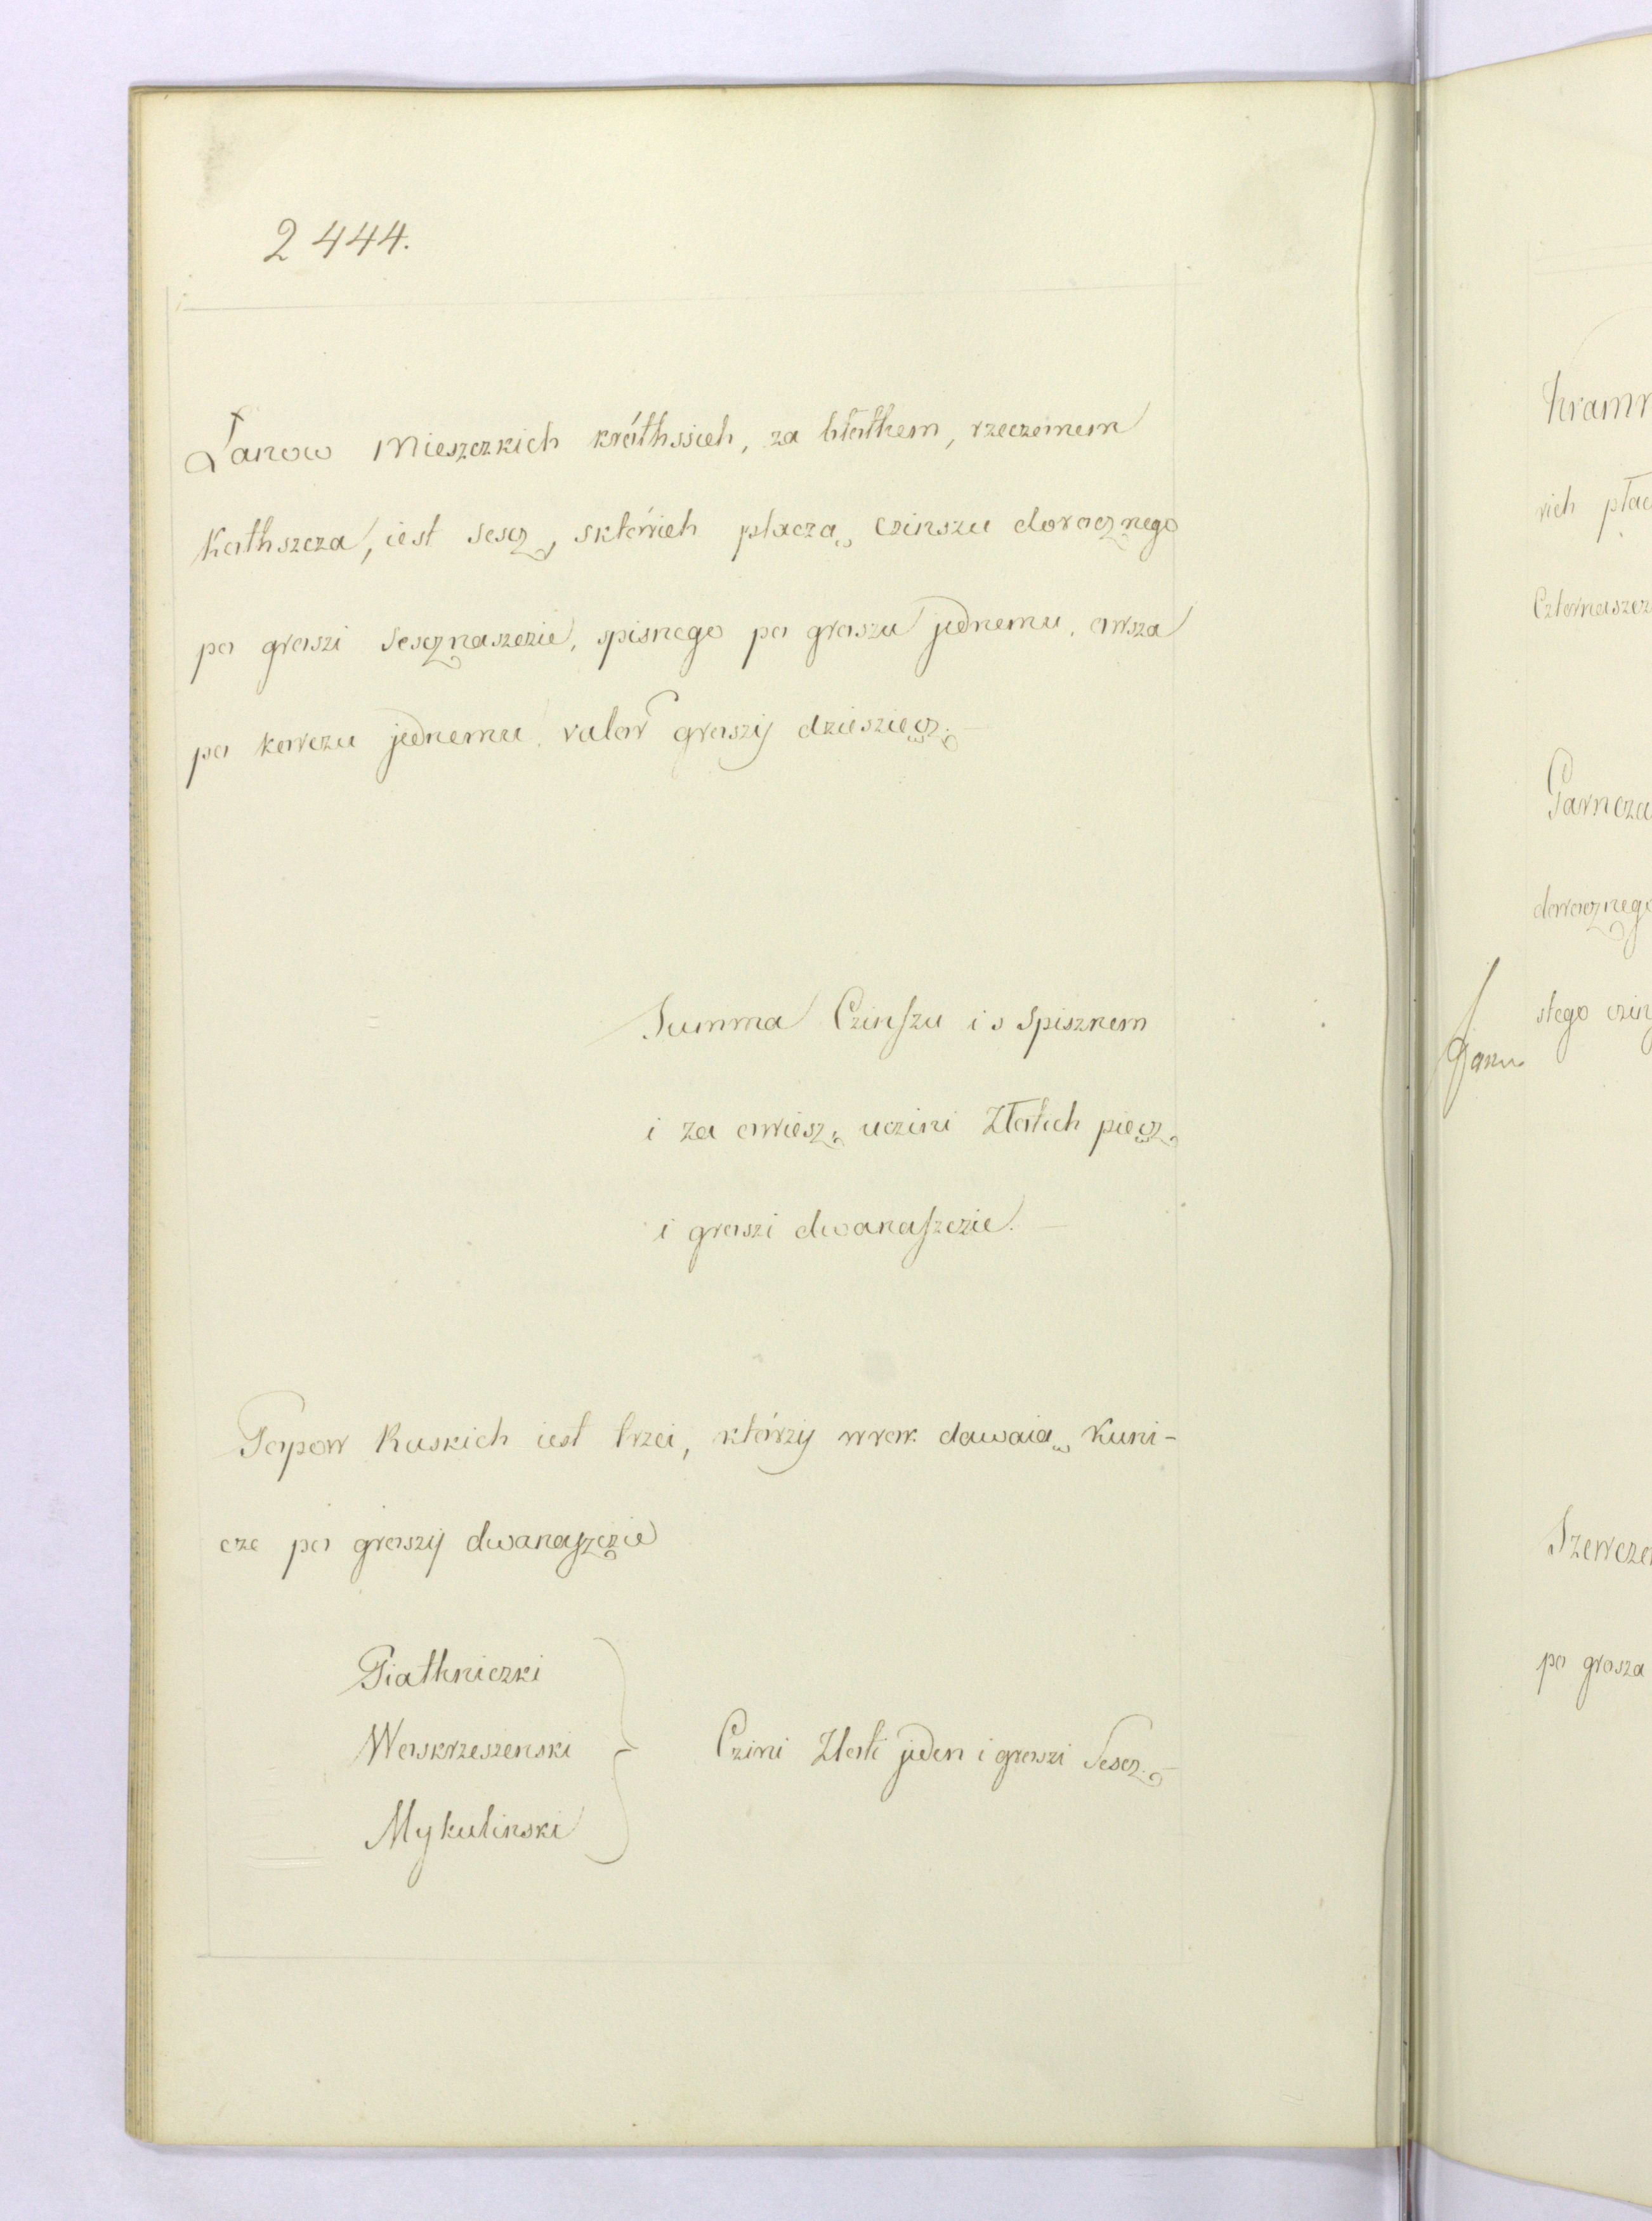 2444.
Łanow Mieszczkich króthssich, za błothem, rzeczonem
Kothszcza, iest sescz, sktórich płacza̧ czinszu dorocznego
po groszi sescznasczie, spisnego po groszu jednemu, owsza
po korczu jednemu valor groszÿ dzieszięcz.—
Summa Czinszu i s Spisznem
i za owiesz, uczini Złotich pięcz
i groszi dwanaszczie.—
Popow Ruskich iest trzei, którzÿ wrok dawaia̧ Kuni-
cze po groszÿ dwanaszczie
Piathniczki
Woskrzeszenski
Mykulinski
Czini Złoti jeden i groszi Sescz.—
kramn
rich płac
Czternaszcz
Garncza
dorocznego
stego czin
Szewcze
po grosza